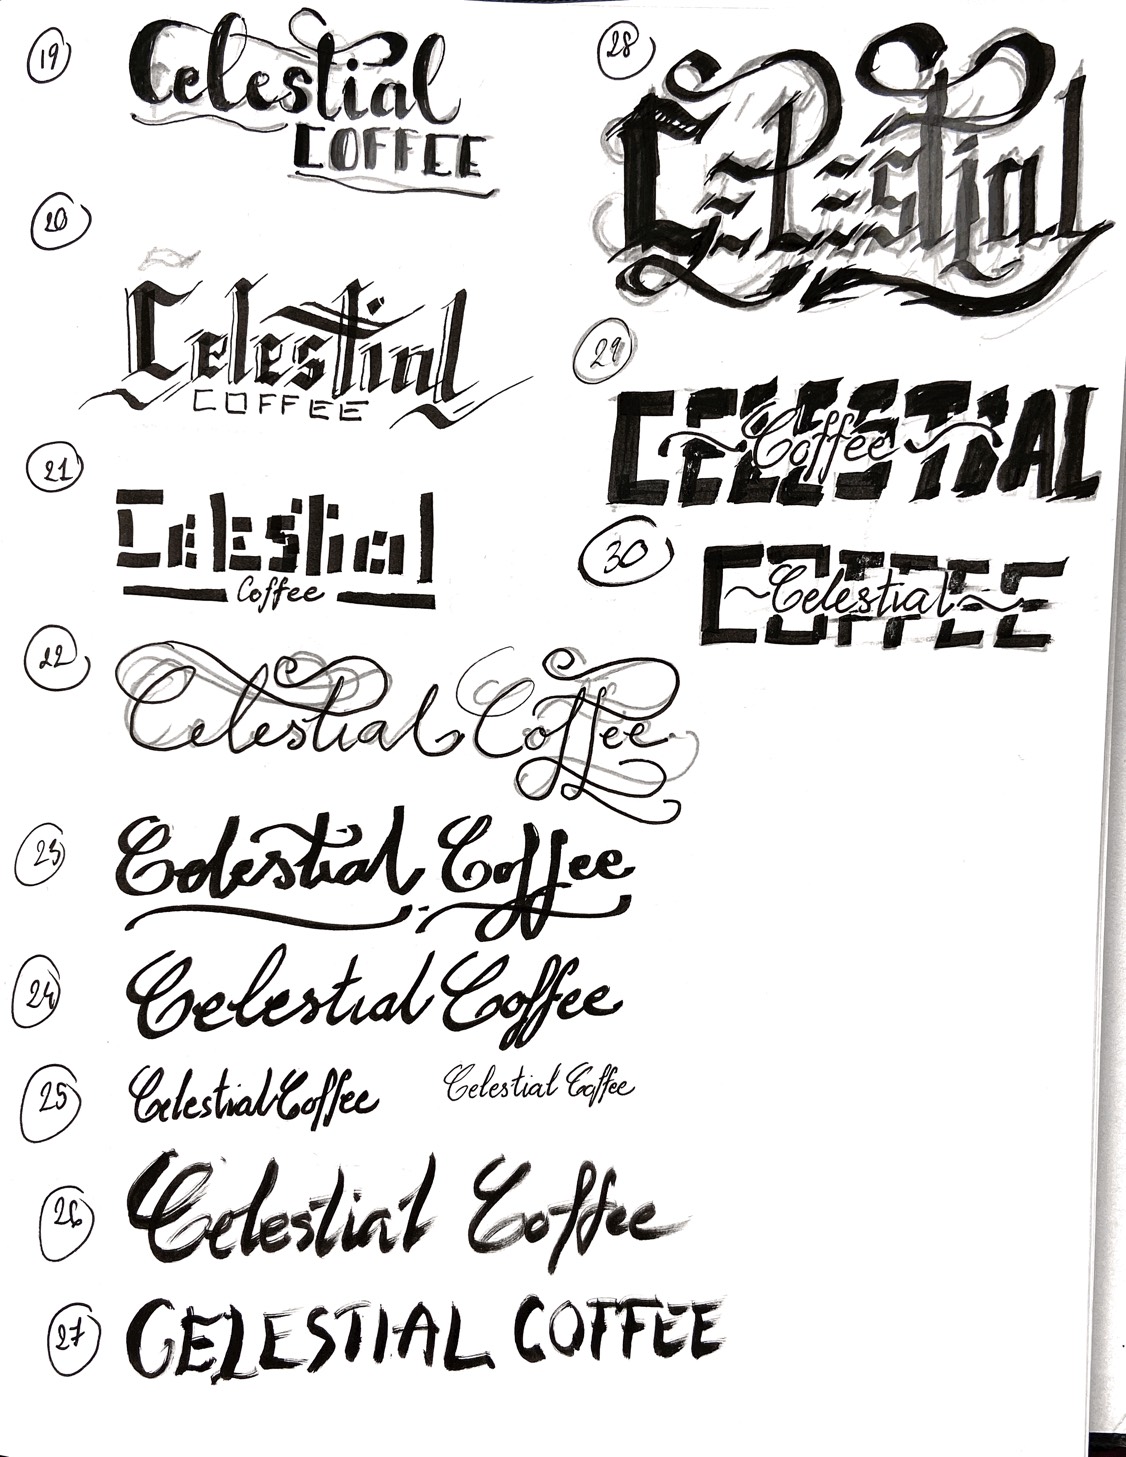 19
Celestial
COFFEE
20
Celestial
COFFEE
21
Celestial
Coffee
22
Celestial Coffee
23
Celestial Coffee
24
Celestial Coffee
25
Celestial Coffee
Celestial Coffee
26
Celestial Coffee
27
CELESTIAL COFFEE
28
Celestial
29
CELESTIAL
Coffee
30
COFFEE
Celestial